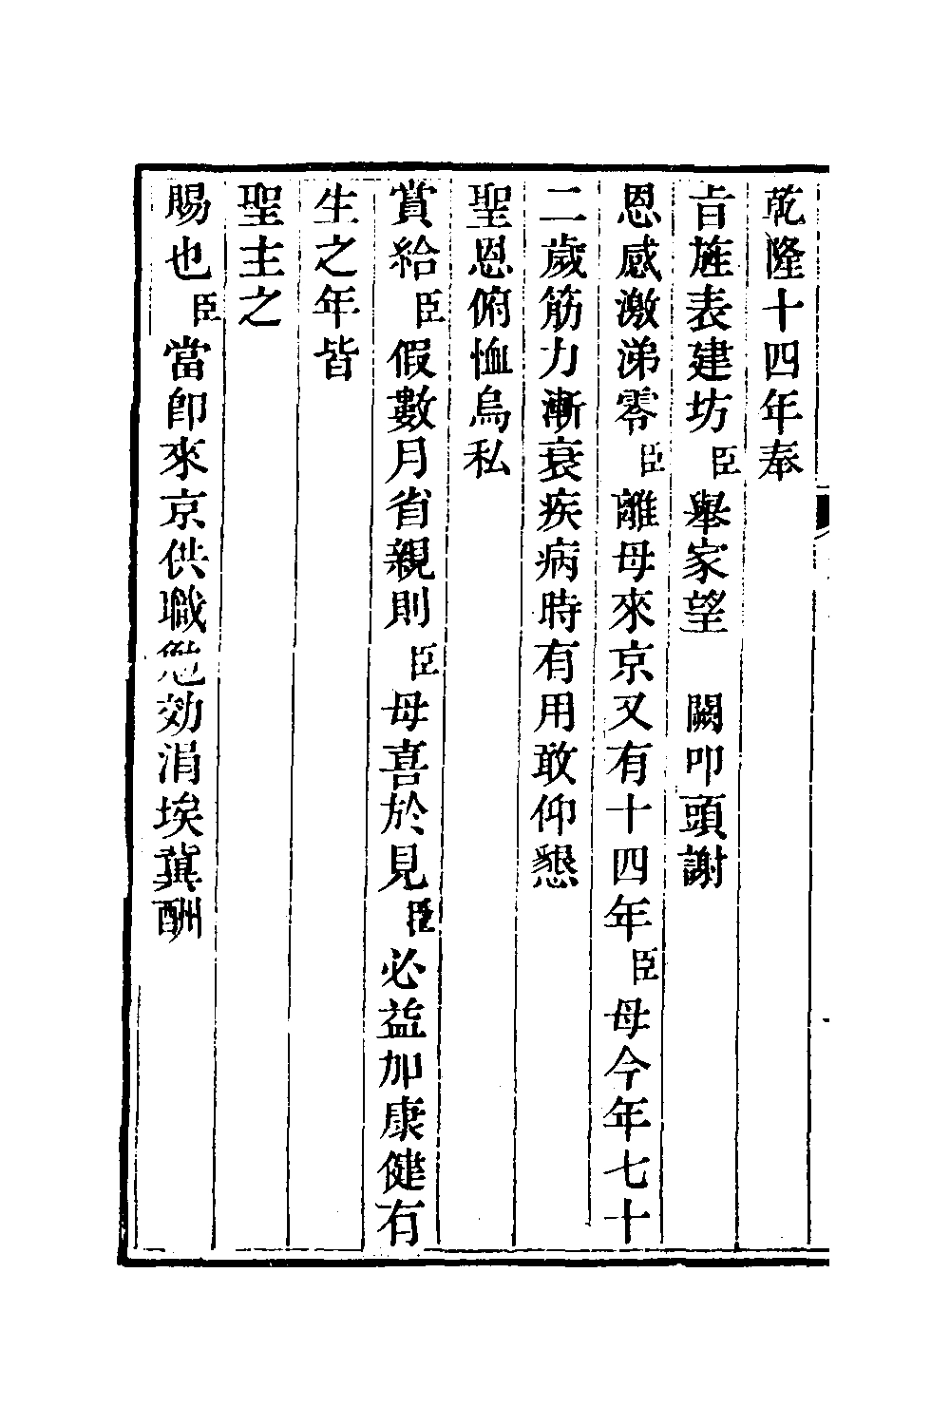 乾隆十四年奉
旨旌表建坊臣舉家望　闕叩頭謝
恩感激涕零臣離母來京又有十四年臣母今年七十
二歲筋力漸衰疾病時有用敢仰懇
聖恩俯恤烏私
賞給臣假數月省親則臣母喜於見臣必益加康健有
生之年皆
聖主之
賜也臣當卽來京供職勉効涓埃冀酬